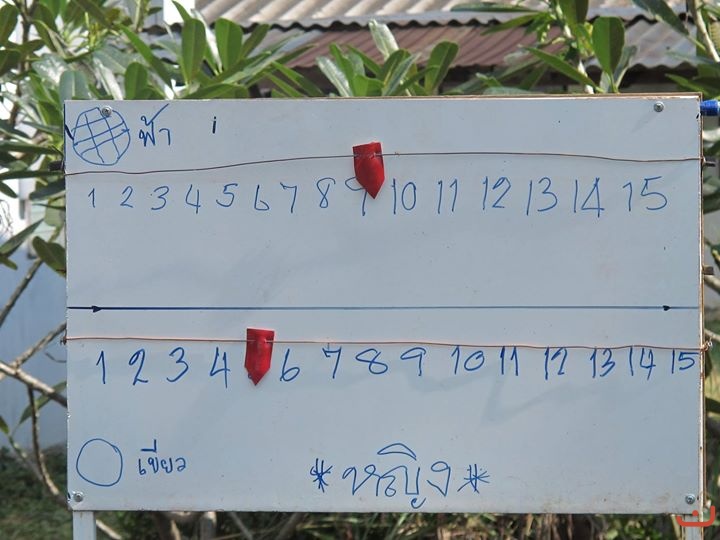 ฟ้า
1 2 3 4 5 6 7 8 9 10 11 12 13 14 15
1 2 3 4 6 7 8 9 10 11 12 13 14 15
เขียว
*หญิง*